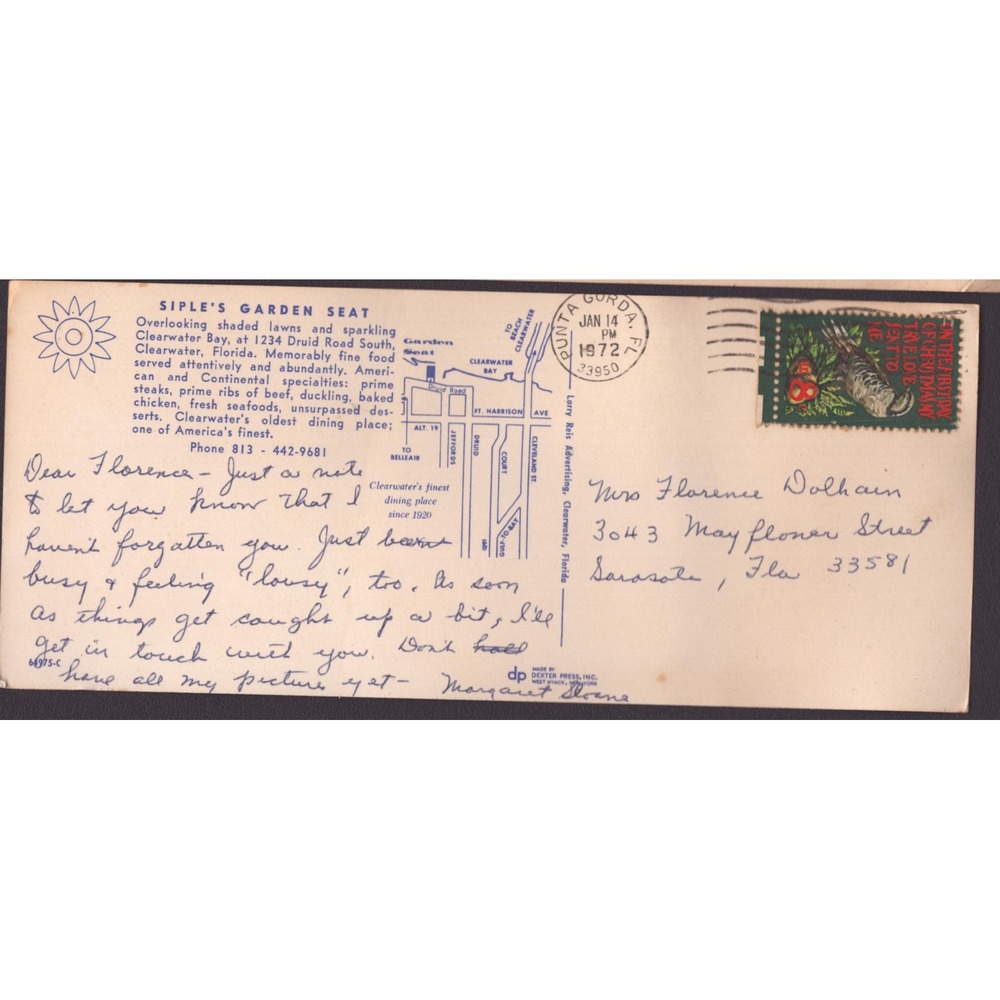 SIPLE'S GARDEN SEAT
Overlooking shaded lawns and sparkling
Clearwater Bay, at 1234 Druid Road South,
Clearwater, Florida. Memorably fine food
served attentively and abundantly. Ameri-
can and Continental specialties: prime
steaks, prime ribs of beef, duckling, baked
chicken, fresh seafoods, unsurpassed des-
serts. Clearwater's oldest dining place;
one of America's finest.
Phone 813 - 442-9681
Garden
Seat
TO
BEACH
CLEARWATER
CLEARWATER
BAY
Druid Road
FT. HARRISON AVE
ALT. 19
TO
BELLEAIR
JEFFORDS
DRUID
COURT
CLEVELAND ST.
GULF-TO-BAY
Clearwater's finest
dining place
since 1920
Larry Reis Advertising, Clearwater, Florida
PUNTA GORDA, FL
JAN 14
PM
1972
33950
ON THE FIRST DAY
OF CHRISTMAS MY
TRUE LOVE
SENT TO
ME
8
US
Dear Florence - Just a note
to let you know that I
haven't forgotten you. Just been
busy & feeling "lousy", too. As soon
as things get caught up a bit, I'll
get in touch with you. Don't
have all my pictures yet -
Margaret Sloane
Mrs Florence Dolhain
3043 Mayflower Street
Sarasota, Fla 33581
dp
MADE BY
DEXTER PRESS, INC.
WEST NYACK, NEW YORK